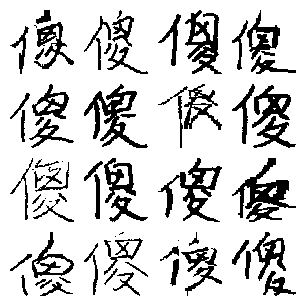 傻傻傻傻
傻傻傻傻
傻傻傻傻
傻傻傻傻